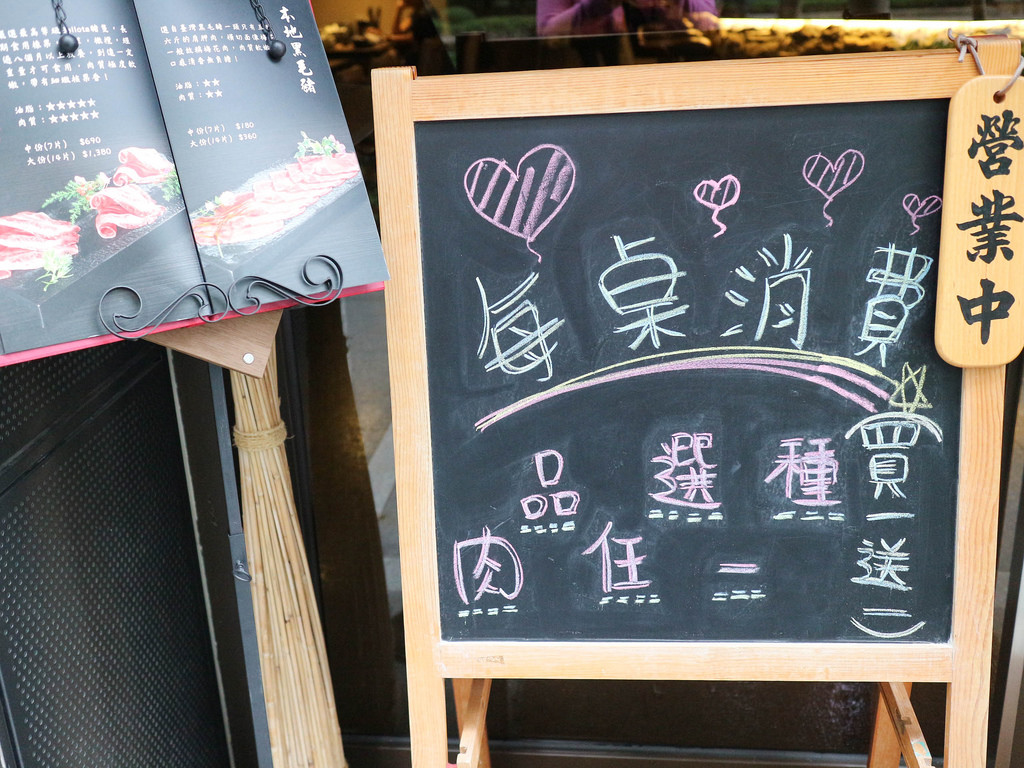 油脂：★★★★★
肉質：★★★★★
中份(7片) $690
大份(14片) $1,380
本地黑毛豬
油脂：★★
肉質：★★
中份(7片) $180
大份(14片) $360
每桌消費
肉品任選一種
買一送一
營業中